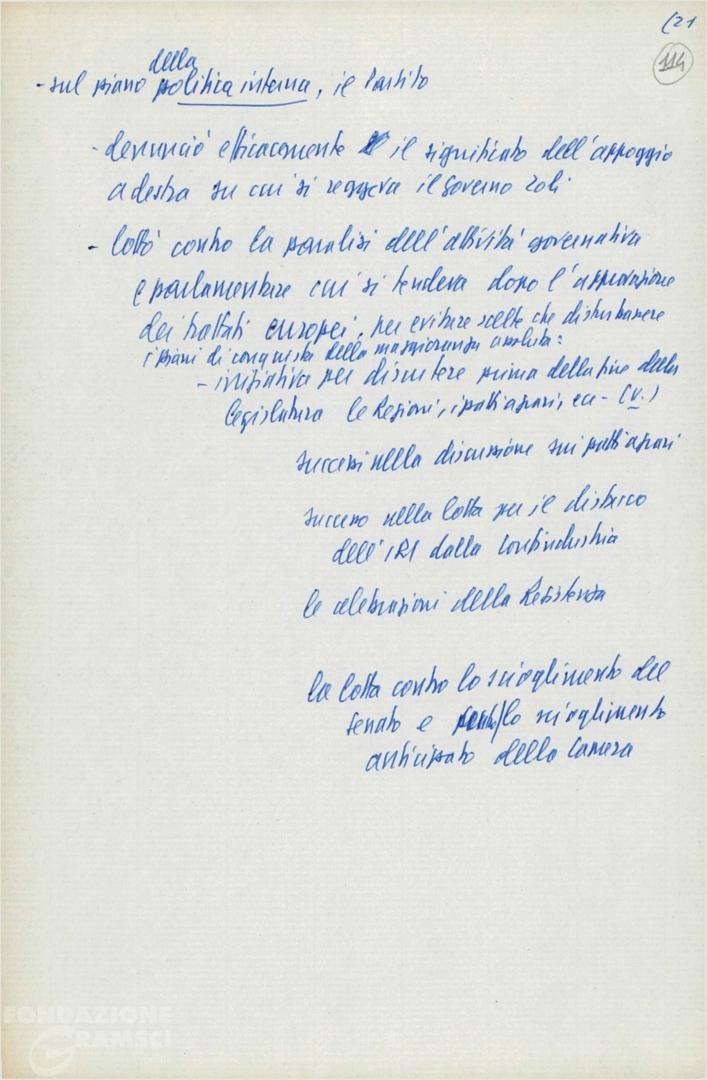 (21
114
della
- sul piano politica interna, il Partito
- denunciò efficacemente il significato dell'appoggio
a destra su cui si reggeva il Governo Zoli
- lottò contro la paralisi dell'attività governativa
e parlamentare cui si tendeva dopo l'approvazione
dei trattati europei, per evitare scelte che disturbassero
i piani di conquista della maggioranza assoluta:
- iniziativa per discutere prima della fine della
legislatura le Regioni, i patti agrari, ecc - (V.)
successi nella discussione sui patti agrari
successo nella lotta per il distacco
dell'IRI dalla Confindustria
le celebrazioni della Resistenza
la lotta contro lo scioglimento del
Senato e lo scioglimento
anticipato della Camera
FONDAZIONE
GRAMSCI